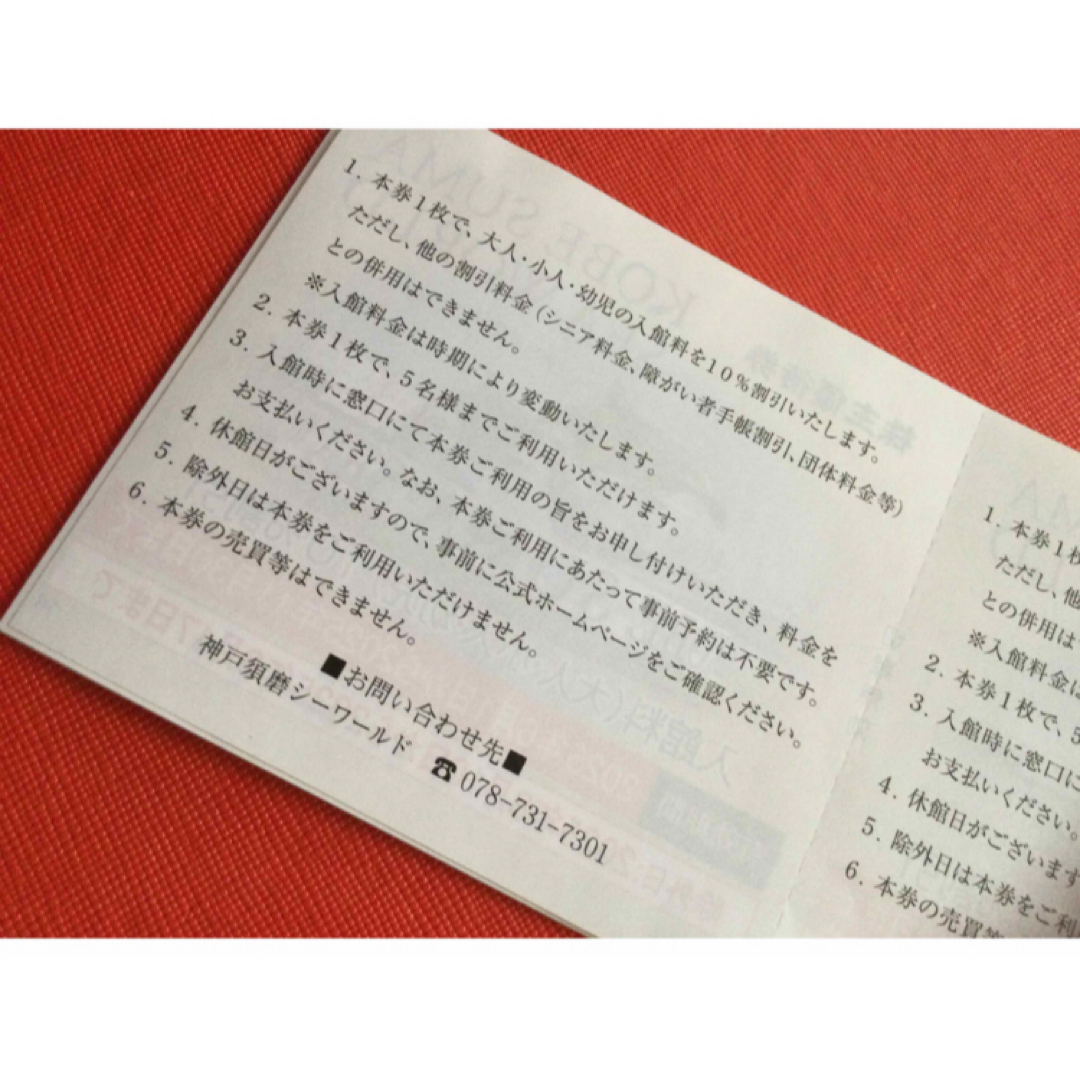 1. 本券1枚で、大人・小人・幼児の入館料を10％割引いたします。
ただし、他の割引料金（シニア料金、障がい者手帳割引、団体料金等）
との併用はできません。
※入館料金は時期により変動いたします。
2. 本券1枚で、5名様までご利用いただけます。
3. 入館時に窓口にて本券ご利用の旨をお申し付けいただき、料金を
お支払いください。なお、本券ご利用にあたって事前予約は不要です。
4. 休館日がございますので、事前に公式ホームページをご確認ください。
5. 除外日は本券をご利用いただけません。
6. 本券の売買等はできません。
■お問い合わせ先■
神戸須磨シーワールド ☎ 078-731-7301
1. 本券1枚
ただし、他
との併用は
※入館料金は
2. 本券1枚で、5
3. 入館時に窓口に
お支払いください。
4. 休館日がございます
5. 除外日は本券をご利
6. 本券の売買等